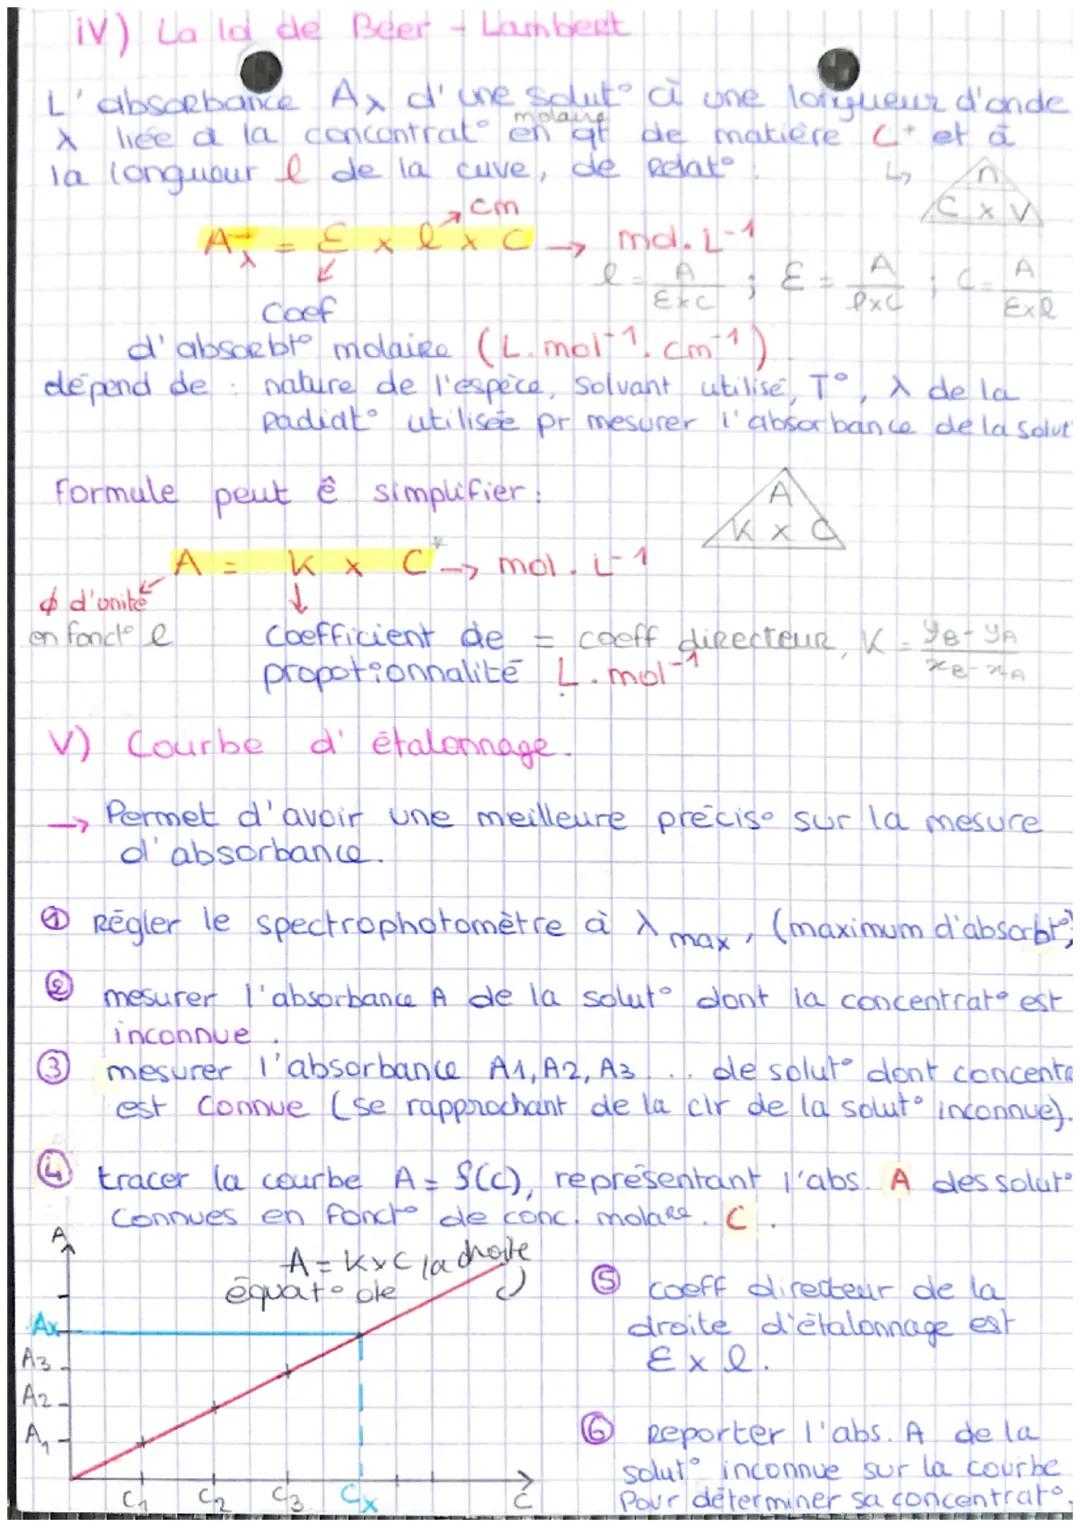 iV) La loi de Beer - Lambert
L'absorbance Aλ d'une solut° à une longueur d'onde
λ liée à la concentrat° en qt molaire de matière C* et à
la longueur l de la cuve, de relat° :
↳ n
C x V
cm
Aλ = ε x l x C → mol.L-1
l = A/(ε×c) ; ε = A/(l×c) ; C = A/(ε×l)
Coef
d'absorbt° molaire (L.mol-1.cm-1)
dépend de : nature de l'espèce, solvant utilisé, T°, λ de la
radiat° utilisée pr mesurer l'absorbance de la solut°
Formule peut ê simplifier :
A
K x C
A = K x C* → mol.L-1
∅ d'unité
en fonct° l
Coefficient de = coeff directeur, K = (yB-yA)/(xB-xA)
propotionnalité L.mol-1
V) Courbe d'étalonnage.
→ Permet d'avoir une meilleure précis° sur la mesure
d'absorbance.
① Régler le spectrophotomètre à λ max, (maximum d'absorbt°)
② mesurer l'absorbance A de la solut° dont la concentrat° est
inconnue.
③ mesurer l'absorbance A1, A2, A3 ... de solut° dont concentra
est connue (se rapprochant de la clr de la solut° inconnue).
④ tracer la courbe A = f(c), représentant l'abs. A des solut°
connues en fonct° de conc. molaire. C.
A
A = K x C la droite
équat° de
Ax
A3
A2
A1
C1 C2 C3 Cx C
⑤ coeff directeur de la
droite d'étalonnage est
ε x l.
⑥ Reporter l'abs. A de la
solut° inconnue sur la courbe
Pour déterminer sa concentrat°.